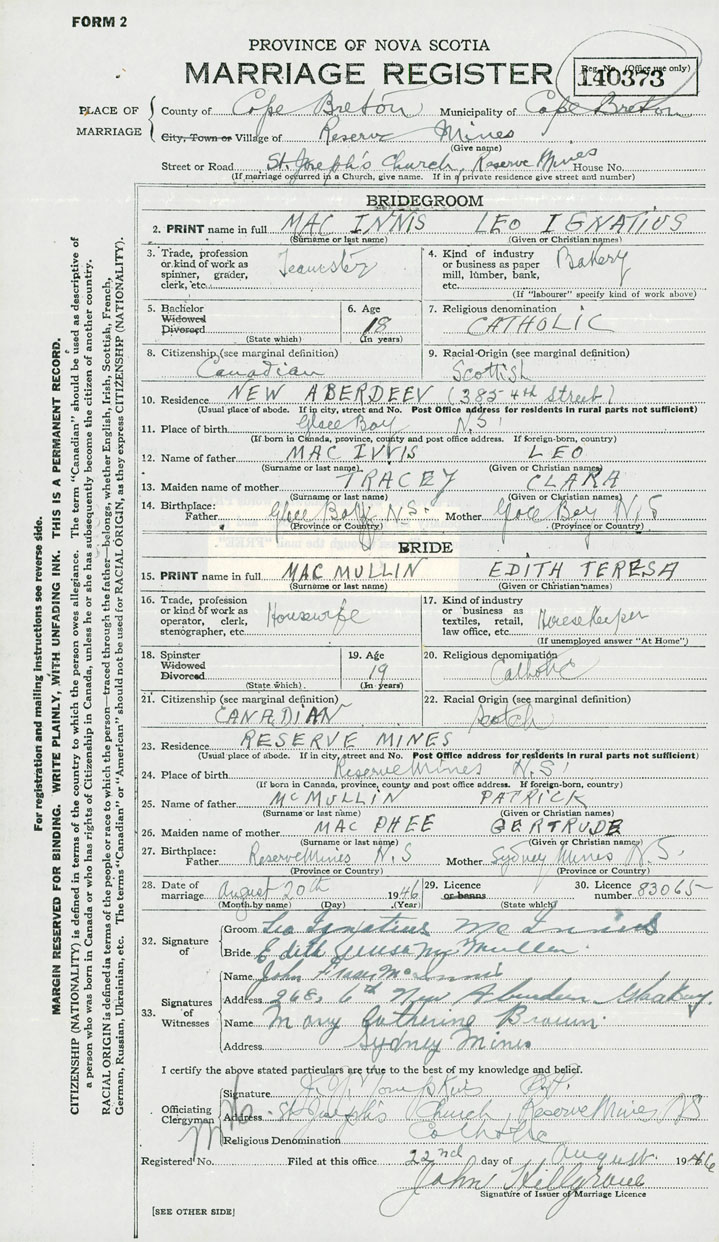 FORM 2
PROVINCE OF NOVA SCOTIA
MARRIAGE REGISTER
Reg. No. (Office use only)
140373
PLACE OF MARRIAGE
County of Cape Breton Municipality of Cape Breton
City, Town or Village of Reserve Mines
(Give name)
Street or Road St. Joseph's Church, Reserve Mines House No.
(If marriage occurred in a Church, give name. If in a private residence give street and number)
BRIDEGROOM
2. PRINT name in full MAC INNIS LEO IGNATIUS
(Surname or last name) (Given or Christian names)
3. Trade, profession or kind of work as spinner, grader, clerk, etc. Teamster
4. Kind of industry or business as paper mill, lumber, bank, etc. Bakery
(If "labourer" specify kind of work above)
5. Bachelor Widowed Divorced
(State which)
6. Age 18
(In years)
7. Religious denomination
CATHOLIC
8. Citizenship (see marginal definition)
Canadian
9. Racial Origin (see marginal definition)
Scottish
10. Residence NEW ABERDEEN (385 4th Street)
(Usual place of abode. If in city, street and No. Post Office address for residents in rural parts not sufficient)
11. Place of birth Glace Bay N.S.
(If born in Canada, province, county and post office address. If foreign-born, country)
12. Name of father MAC INNIS LEO
(Surname or last name) (Given or Christian names)
13. Maiden name of mother TRACEY CLARA
(Surname or last name) (Given or Christian names)
14. Birthplace: Father Glace Bay N.S. Mother Glace Bay N.S
(Province or Country) (Province or Country)
BRIDE
15. PRINT name in full MAC MULLIN EDITH TERESA
(Surname or last name) (Given or Christian names)
16. Trade, profession or kind of work as operator, clerk, stenographer, etc. Housewife
17. Kind of industry or business as textiles, retail, law office, etc. Housekeeper
(If unemployed answer "At Home")
18. Spinster Widowed Divorced
(State which)
19. Age 19
(In years)
20. Religious denomination
Catholic
21. Citizenship (see marginal definition)
CANADIAN
22. Racial Origin (see marginal definition)
Scotch
23. Residence RESERVE MINES
(Usual place of abode. If in city, street and No. Post Office address for residents in rural parts not sufficient)
24. Place of birth Reserve Mines N.S.
(If born in Canada, province, county and post office address. If foreign-born, country)
25. Name of father McMULLIN PATRICK
(Surname or last name) (Given or Christian names)
26. Maiden name of mother MAC PHEE GERTRUDE
(Surname or last name) (Given or Christian names)
27. Birthplace: Father Reserve Mines N.S Mother Sydney Mines N.S.
(Province or Country) (Province or Country)
28. Date of marriage August 20th 1946
(Month by name) (Day) (Year)
29. Licence or banns
(State which)
30. Licence number 83065
32. Signature of
Groom Leo Ignatius McInnis
Bride Edith Teresa McMullen
33. Signatures of Witnesses
Name John McInnis
Address 268, 6th New Aberdeen Glace Bay
Name Mary Catherine Brown
Address Sydney Mines
I certify the above stated particulars are true to the best of my knowledge and belief.
Officiating Clergyman
Signature J. J. Tompkins P.P.
Address St. Joseph's Church, Reserve Mines NS
Religious Denomination Catholic
Registered No. Filed at this office 22nd day of August 1946
John Killgrove
Signature of Issuer of Marriage Licence
[SEE OTHER SIDE]
For registration and mailing instructions see reverse side.
MARGIN RESERVED FOR BINDING. WRITE PLAINLY, WITH UNFADING INK. THIS IS A PERMANENT RECORD.
CITIZENSHIP (NATIONALITY) is defined in terms of the country to which the person owes allegiance. The term "Canadian" should be used as descriptive of
a person who was born in Canada or who has rights of Citizenship in Canada, unless he or she has subsequently become the citizen of another country.
RACIAL ORIGIN is defined in terms of the people or race to which the person—traced through the father—belongs, whether English, Irish, Scottish, French,
German, Russian, Ukrainian, etc. The terms "Canadian" or "American" should not be used for RACIAL ORIGIN, as they express CITIZENSHIP (NATIONALITY).